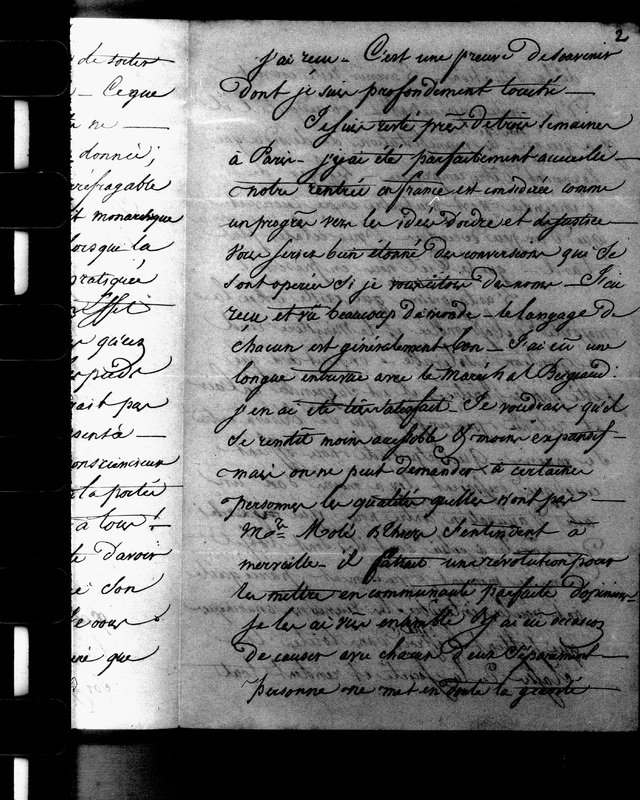 2
de sortir
— Ce que
ne —
donnée ;
irréfragable
et monarchique
lorsque la
pratiquée
effet
qu'en
pieds
par
senta —
consciencieux
à la portée
à tour !
d'avoir
son
vous
que
j'ai recu — C'est une preuve de souvenir
dont je suis profondement touché —
Je suis resté près de trois semaines
à Paris — j'y ai été parfaitement accueilli —
notre rentrée en france est considérée comme
un progrès vers les idées d'ordre et de justice —
vous seriez bien étonné des conversions qui se
sont operées si je vous citois des noms — J'ai
recu et vu beaucoup de monde — le langage de
chacun est généralement bon — J'ai eu une
longue entrevue avec le Maréchal Bugeaud :
j'en ai été très satisfait — Je voudrais qu'il
se rendit moins accessible & moins expansif —
mais on ne peut demander à certaines
personnes les qualités qu'elles n'ont pas —
Mrs Molé & Thiers s'entendent à
merveille — il fallait une révolution pour
les mettre en communauté parfaite d'opinions —
je les ai vus ensemble & j'ai eu occasion
de causer avec chacun d'eux séparément —
personne ne met en doute la gravité